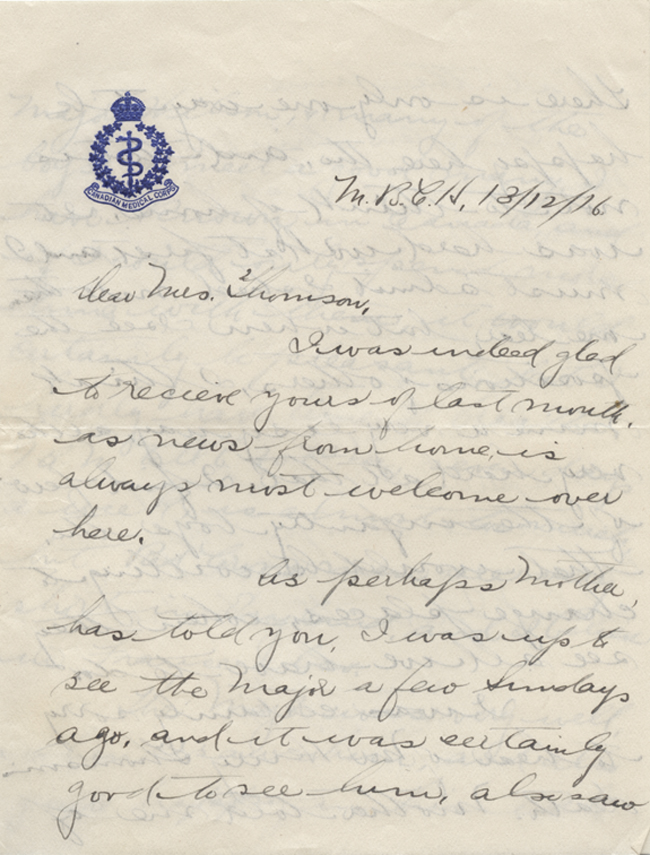 CANADIAN MEDICAL CORPS
M.B.C.H, 13/12/16
Dear Mrs. Thomson,
I was indeed glad
to recieve yours of last month.
as news from home, is
always most welcome over
here.
As perhaps Mother,
has told you, I was up to
see the Major a few Sundays
ago, and it was certainly
good to see him, also saw